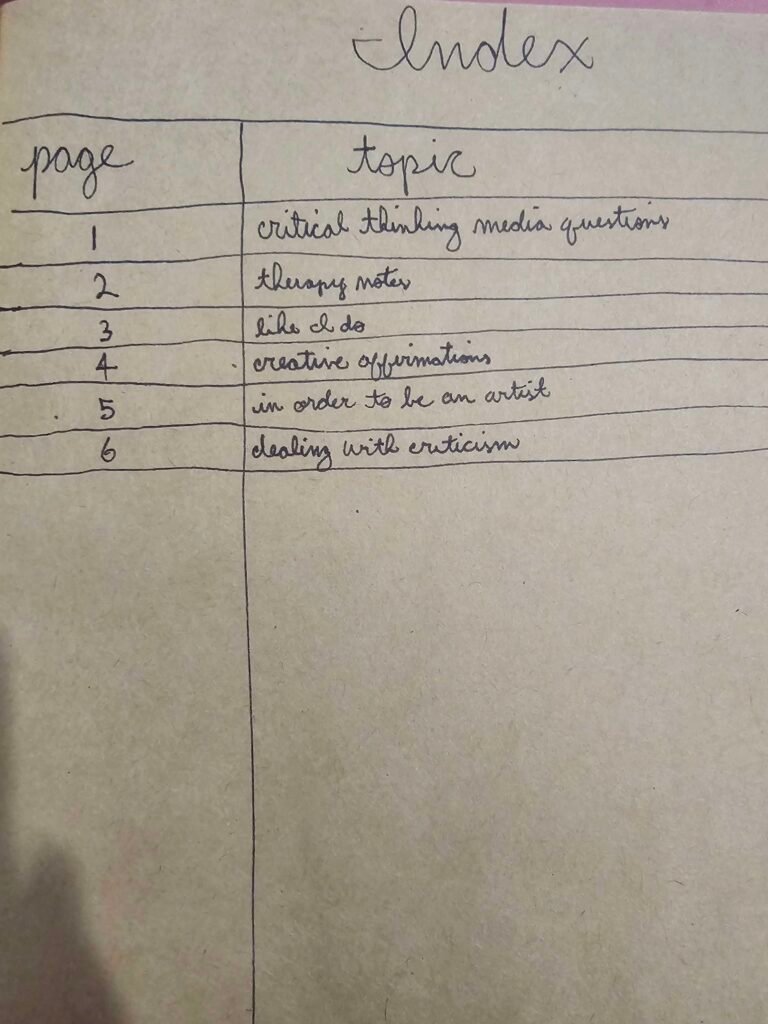 Index
page topic
1 critical thinking media questions
2 therapy notes
3 like I do
4 creative affirmations
5 in order to be an artist
6 dealing with criticism